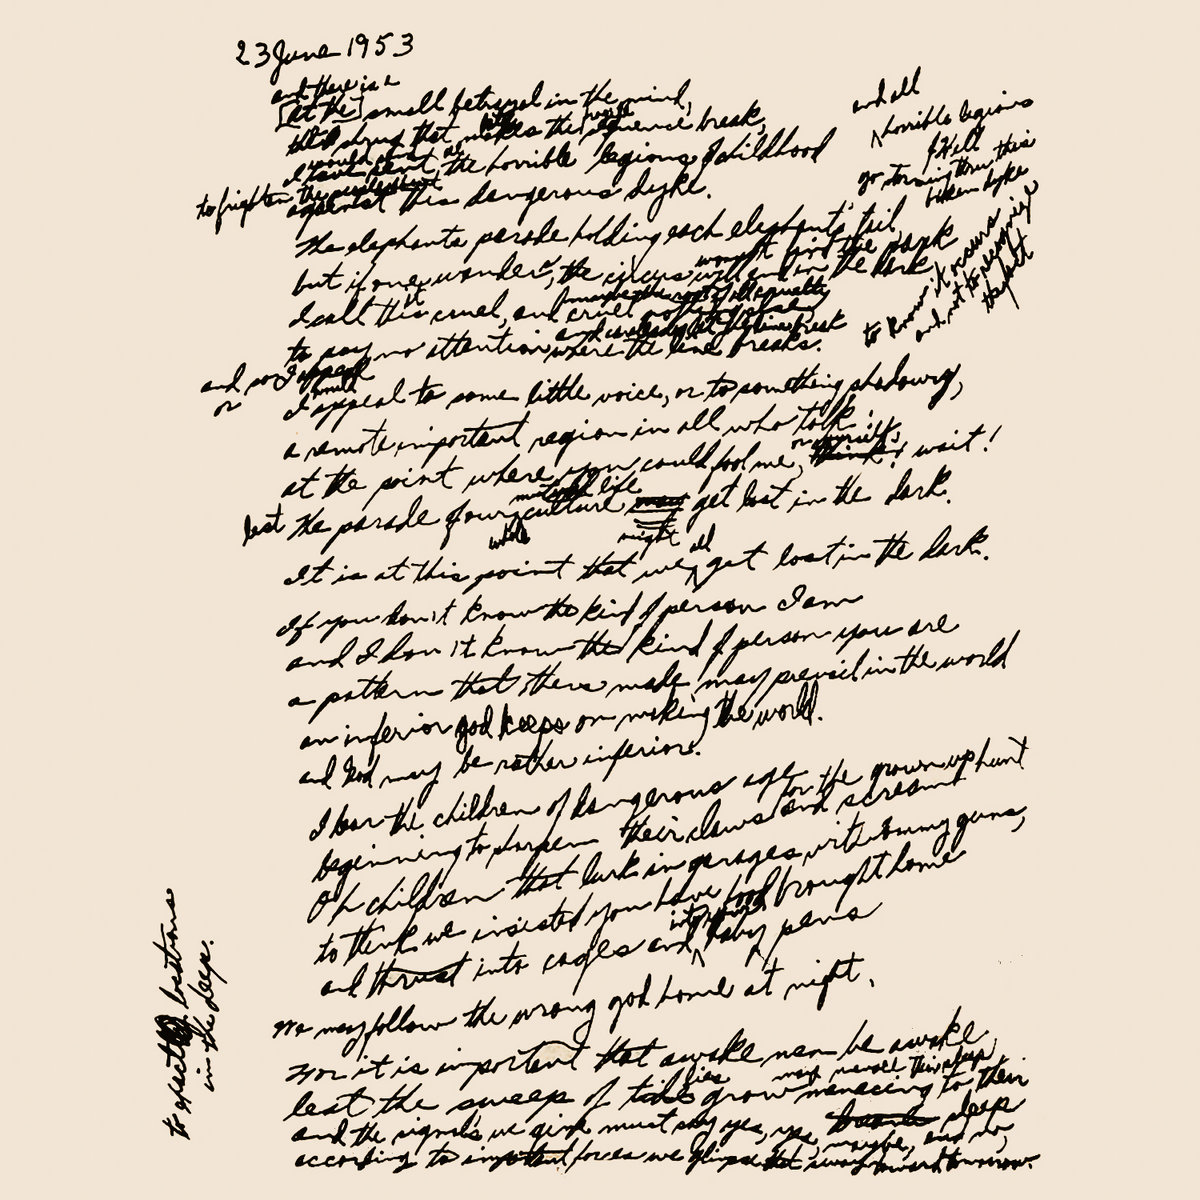 23 June 1953
and there is a
[at the] small betrayal in the mind,
shrug that makes the sequence break,
would
I sent, the horrible legions of childhood
to frighten the
against this dangerous dyke.
and all
horrible legions
of Hell
go storming thru this
broken dyke
The elephants parade holding each elephant's tail,
but if one wanders, the circus will end in the dark
won't find the park
I call it this cruel, and cruel
maybe the root of all cruelty
and
to pay no attention where the line breaks.
to know it occurs
and not to recognize
the fact
and so I appeal
or
I appeal to some little voice, or to something shadowy,
a remote important region in all who talk:
at the point where you could fool me, think! wait!
or myself
mutual life
lest the parade of our culture may get lost in the dark.
whole
might
It is at this point that we all get lost in the dark.
If you don't know the kind of person I am
and I don't know the kind of person you are
a pattern that others made may prevail in the world
an inferior god keeps on making the world.
and God may be rather inferior.
I hear the children of dangerous age
for the grown up hunt
beginning to sharpen their claws and scream
Oh children that lurk in garages with tommy guns,
to think we insisted you have food brought home
and thrust into cages and baby pens
into
We may follow the wrong god home at night.
For it is important that awake men be awake
lest the sweep of tides grow menacing to their
lies
may
sleep
and the signals we give must say yes, yes, maybe, and no,
deep
according to important forces we glimpse that sway toward tomorrow.
to
locations
in the deep.